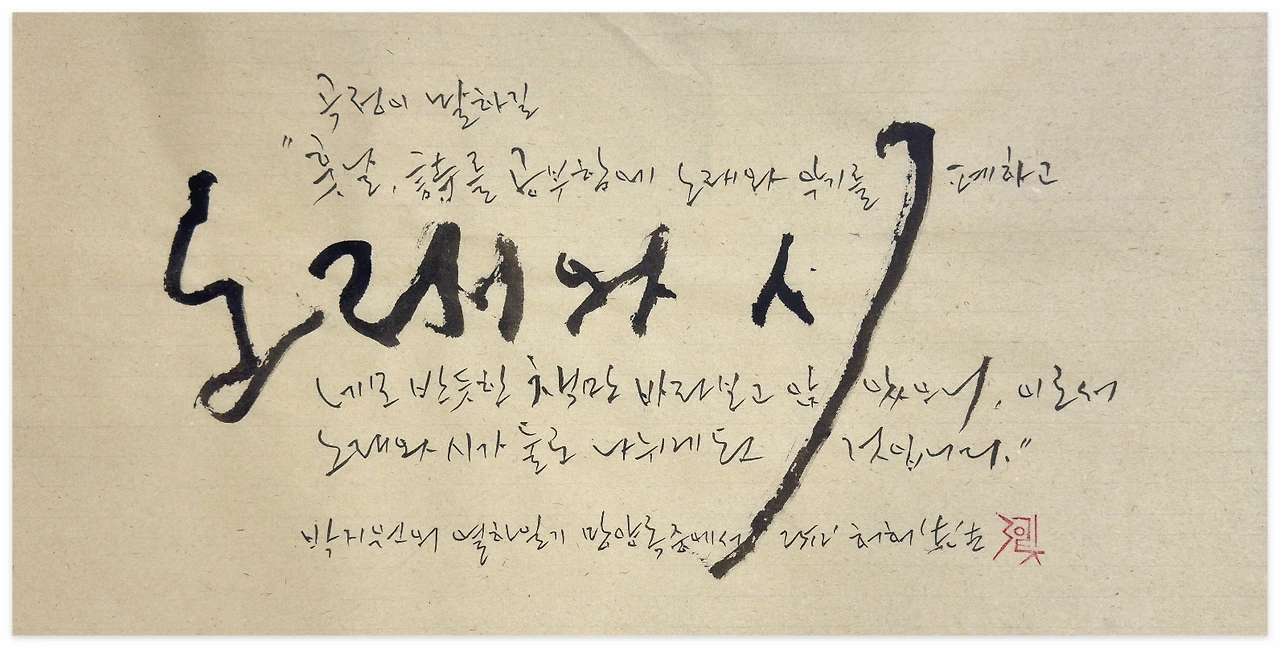 곡정이 말하길
"훗날, 詩를 공부함에 노래와 악기를 폐하고
노래와 시
네모 반듯한 책만 바라보고 앉았으니, 이로서
노래와 시가 둘로 나뉘게 된 것입니다."
박지원의 열하일기 망양록중에서 허허